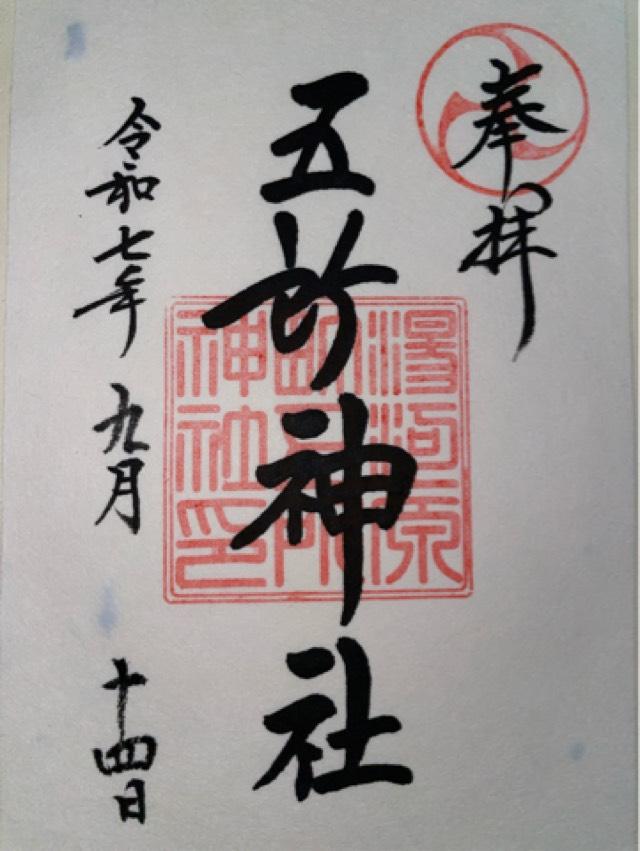 奉拝
五所神社
湯河原
鎮座五所
神社印
令和七年 九月 十四日